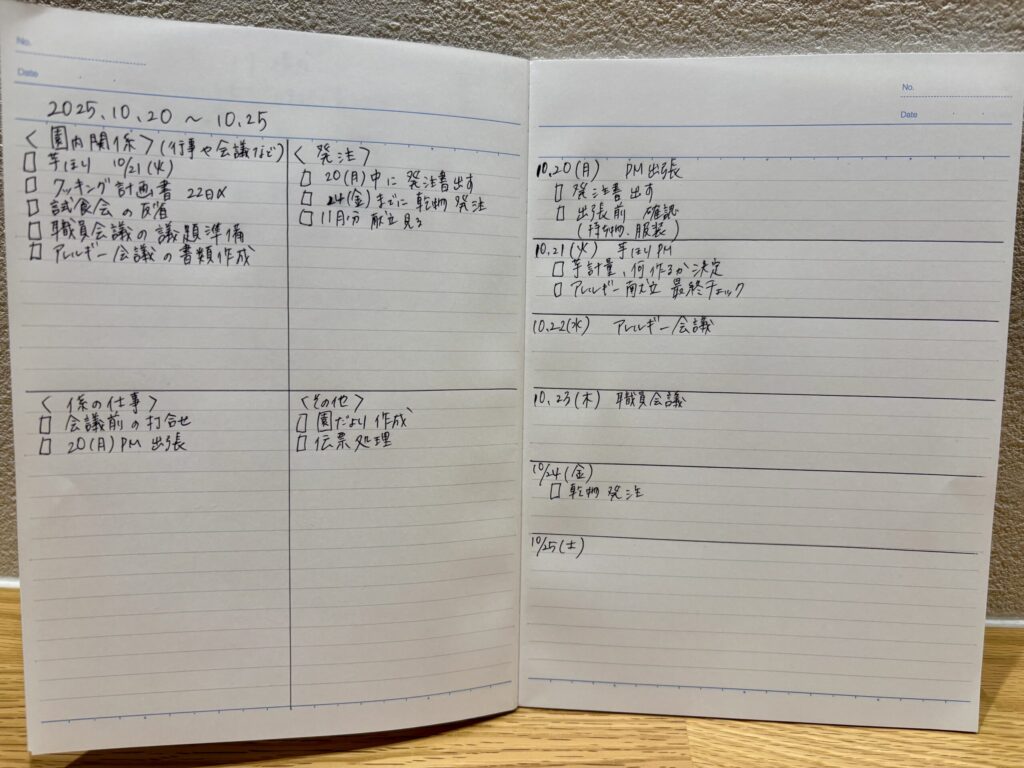 No.
Date
2025.10.20 ~ 10.25
< 園内関係 > (行事や会議など)
□ 芋ほり 10/21(火)
□ クッキング計画書 22日〆
□ 試食会の反省
□ 職員会議の議題準備
□ アレルギー会議の書類作成
< 発注 >
□ 20(月)中に 発注書出す
□ 24(金)までに 乾物 発注
□ 11月分 献立見る
< 係の仕事 >
□ 会議前の打合せ
□ 20(月)PM 出張
<その他>
□ 園だより 作成
□ 伝票処理
No.
Date
10.20(月) PM出張
□ 発注書出す
□ 出張前 確認
(持ち物、服装)
10.21(火) 芋ほりPM
□ 芋計量、何作るか決定
□ アレルギー献立 最終チェック
10.22(水) アレルギー会議
10.23(木) 職員会議
10/24(金)
□ 乾物 発注
10/25(土)